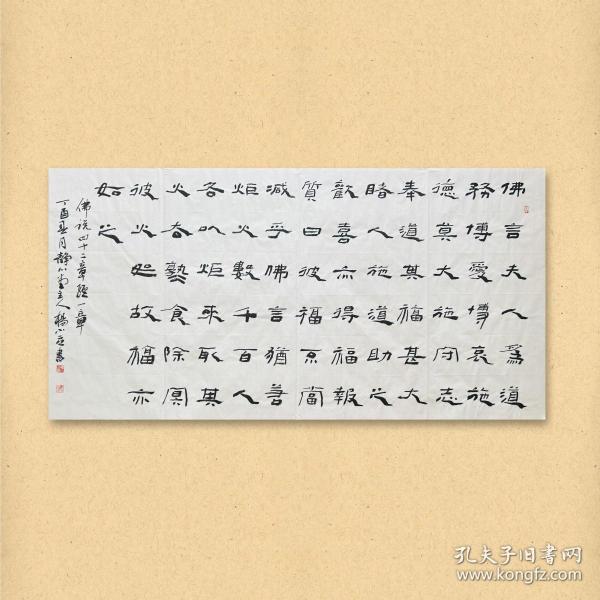 佛言夫人為道
務博愛博哀施
德莫大施守志
奉道其福甚大
睹人施道助之
歡喜亦得福報
質曰彼福當
减乎佛言猶若
炬火數千百人
各以炬來取其
火去食除冥
彼火故福亦
如之
佛說四十二章經一章
丁酉月靜心堂主人楊書
孔夫子旧书网
www.kongfz.com